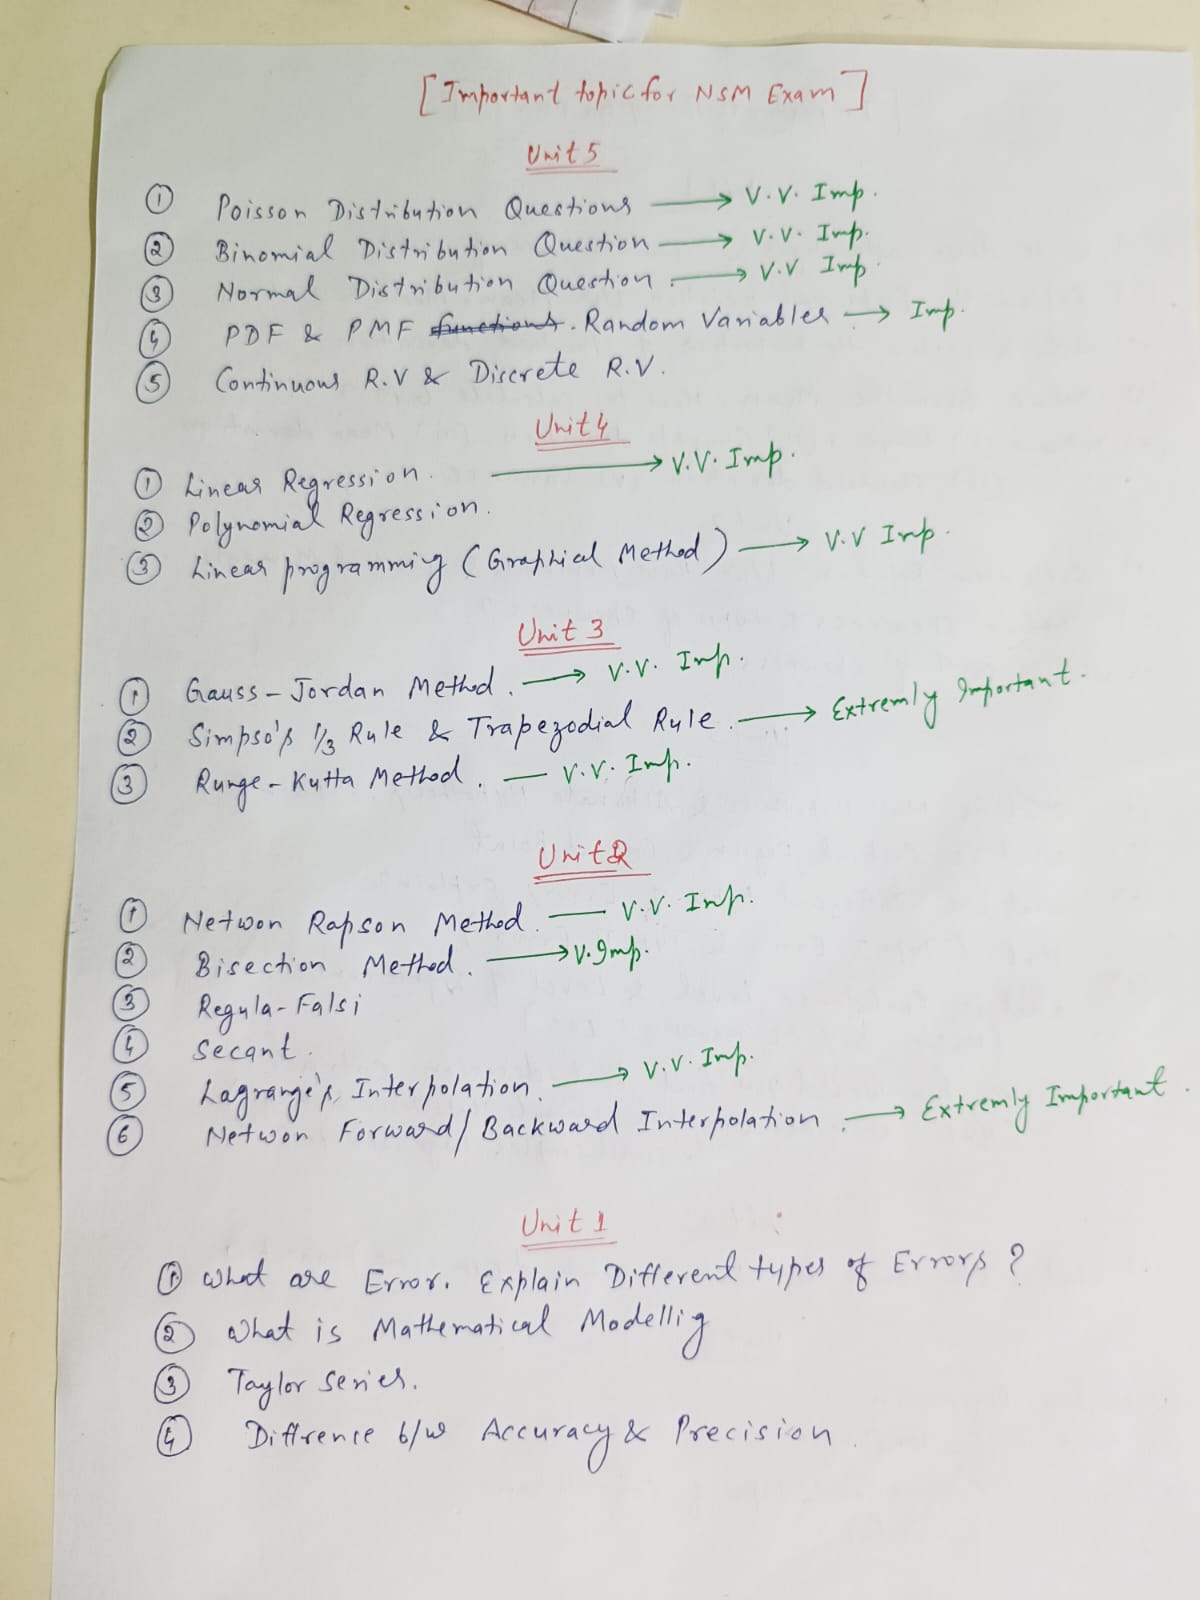 [Important topic for NSM Exam]
Unit 5
① Poisson Distribution Questions → V.V. Imp.
② Binomial Distribution Question → V.V. Imp.
③ Normal Distribution Question. → V.V Imp.
④ PDF & PMF functions. Random Variables → Imp.
⑤ Continuous R.V & Discrete R.V.
Unit 4
① Linear Regression. → V.V. Imp.
② Polynomial Regression.
③ Linear programming (Graphical Method) → V.V Imp.
Unit 3
① Gauss-Jordan Method. → V.V. Imp.
② Simpso's 1/3 Rule & Trapezodial Rule. → Extremly Important.
③ Runge-Kutta Method. — V.V. Imp.
Unit 2
① Netwon Rapson Method. — V.V. Imp.
② Bisection Method. → V. Imp.
③ Regula-Falsi
④ Secant.
⑤ Lagrange's Interpolation. → V.V. Imp.
⑥ Netwon Forward/Backward Interpolation. → Extremly Important.
Unit 1
① What are Error. Explain Different types of Errors?
② What is Mathematical Modellig
③ Taylor Series.
④ Diffrence b/w Accuracy & Precision.